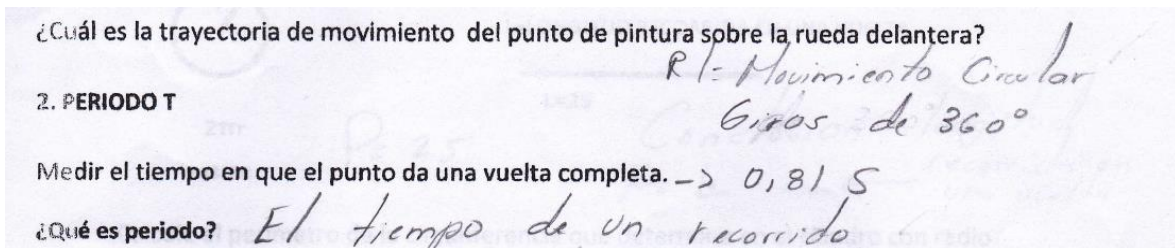 ¿Cuál es la trayectoria de movimiento del punto de pintura sobre la rueda delantera?
R/= Movimiento Circular
2. PERIODO T
Giros de 360°
Medir el tiempo en que el punto da una vuelta completa. -> 0,81 S
¿Qué es periodo? El tiempo de un recorrido